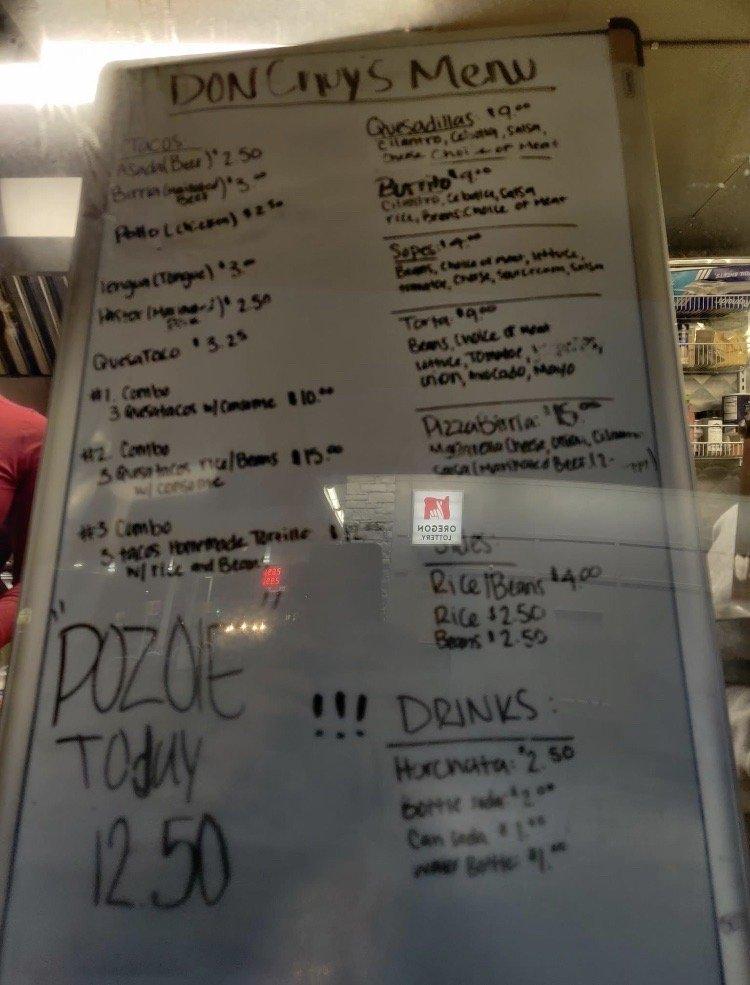 DON Chuy's Menu
Tacos:
Asada (Beef) $2.50
Birria (Marinated $3.00
Beef)
Pollo (Chicken) $2.50
lengua (Tongue) $3.00
Pastor (Marinated $2.50
Pork)
QuesaTaco $3.25
#1. Combo
3 Quesatacos w/ Consome $10.00
#2. Combo
3 Quesatacos rice/Beans $15.00
w/ consome
#3 Combo
3 tacos Homemade Tortilla
w/ rice and Beans
"POZOlE"
TOdAY
12.50
!!!
Quesadillas $9.00
Cilantro, Cebolla, Salsa,
Cheese Choice of Meat
Burrito $9.00
Cilantro, Cebolla, Salsa
rice, Beans, Choice of Meat
Sopes $4.00
Beans, Choice of meat, lettuce,
tomatoe, Cheese, Sour cream, Salsa
Torta $9.00
Beans, Choice of Meat
lettuce, Tomatoe,
onion, Avocado, Mayo
Pizzabirria: $15.00
Mozzarella Cheese, Onion, Cilantro
Salsa (Marinated Beef)
OREGON
LOTTERY.
Sides:
Rice/Beans $4.00
Rice $2.50
Beans $2.50
DRINKS:
Horchata: $2.50
Bottle soda $2.00
Can soda $1.00
Water Bottle: $1.00